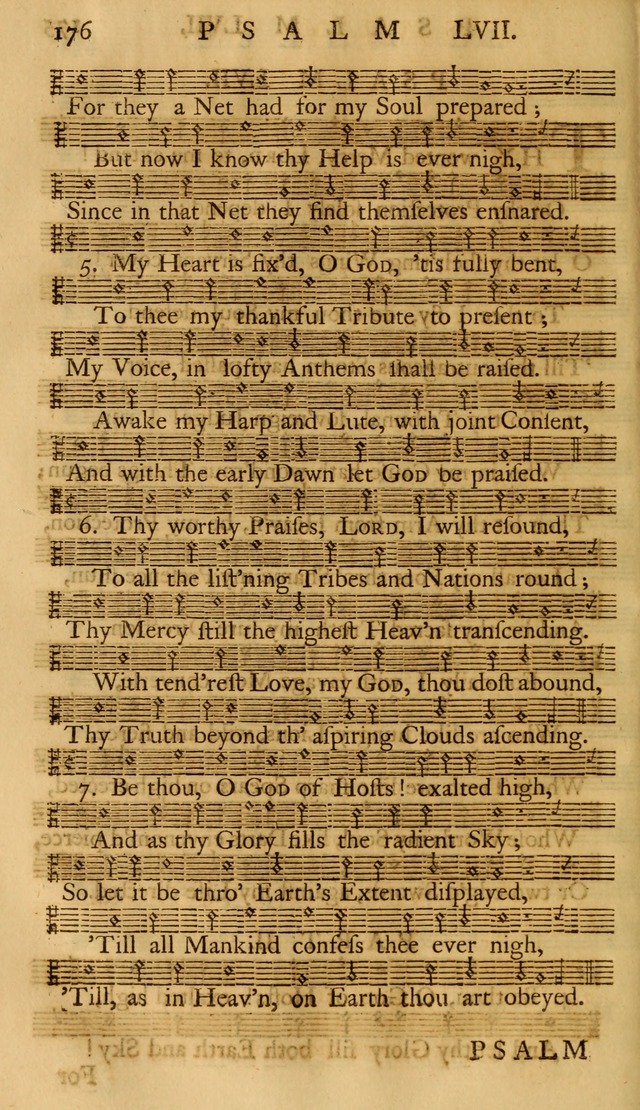 176 PSALM LVII.
For they a Net had for my Soul prepared;
But now I know thy Help is ever nigh,
Since in that Net they find themſelves enſnared.
5. My Heart is fix'd, O GOD, 'tis fully bent,
To thee my thankful Tribute to preſent;
My Voice, in lofty Anthems ſhall be raiſed.
Awake my Harp and Lute, with joint Conſent,
And with the early Dawn let GOD be praiſed.
6. Thy worthy Praiſes, LORD, I will reſound,
To all the liſt'ning Tribes and Nations round;
Thy Mercy ſtill the higheſt Heav'n tranſcending.
With tend'reſt Love, my GOD, thou doſt abound,
Thy Truth beyond th' aſpiring Clouds aſcending.
7. Be thou, O GOD of Hoſts! exalted high,
And as thy Glory fills the radient Sky;
So let it be thro' Earth's Extent diſplayed,
'Till all Mankind confeſs thee ever nigh,
'Till, as in Heav'n, on Earth thou art obeyed.
PSALM